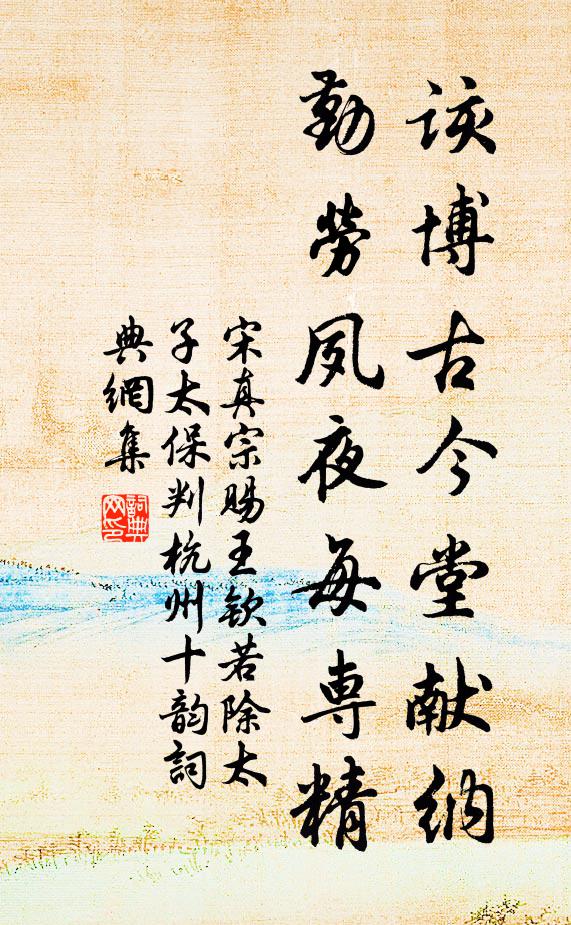 该博古今堂献纳
勤劳夙夜每専精
宋真宗赐王钦若除太
子太保判杭州十韵詞
典網集
詞典網印